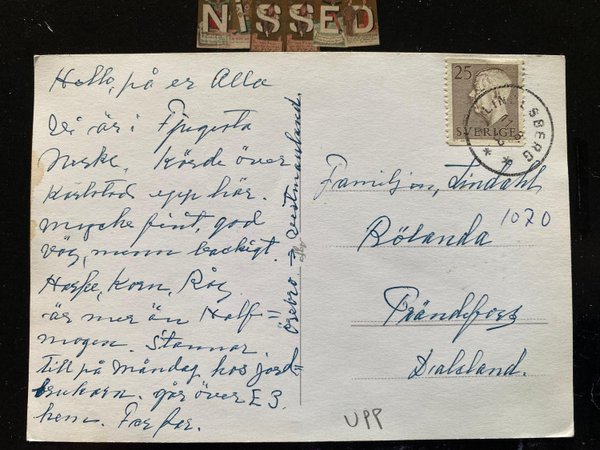 NISSED
Hallo, på er Alla
Vi är i Fjugesta
Nerke, Körde över
Karlstad upp här.
mycke fint, god
väg, menn backigt.
Havre, Korn, Råg
är mer än Half=
mogen. Stannar
till på Måndag hos jord=
brukarn. går över E 3.
hem. Far far.
Örebro → Vestmanland.
25
SVERIGE
LINDESBERG
Familjen, Lindahl
1070
Rölanda
Dalsland.
UPP